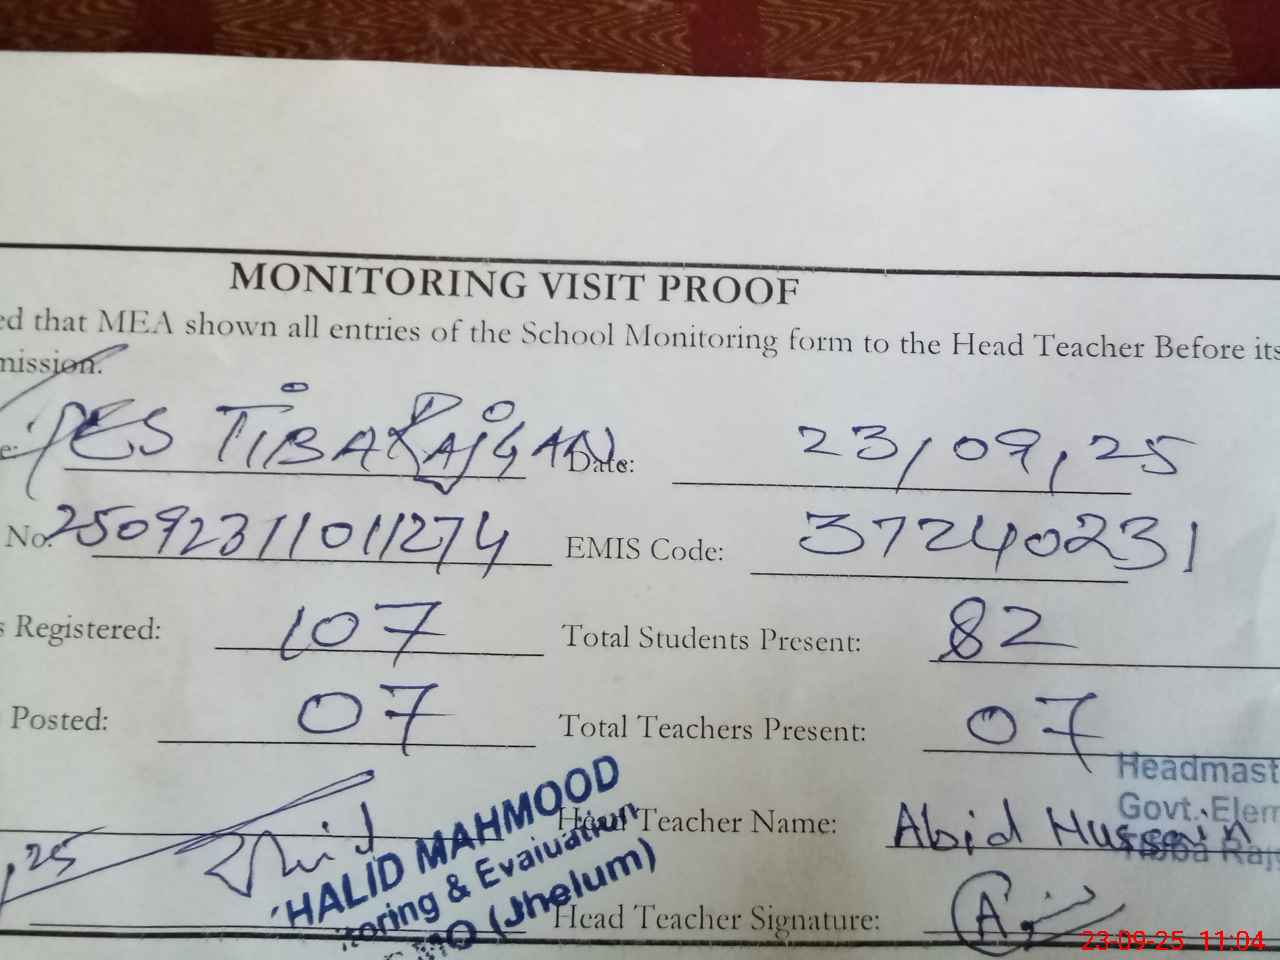 MONITORING VISIT PROOF
ed that MEA shown all entries of the School Monitoring form to the Head Teacher Before its
mission.
e: TIBA RAJGAN Date: 23/09/25
No. 25092311011274 EMIS Code: 37240231
s Registered: 107 Total Students Present: 82
Posted: 07 Total Teachers Present: 07
Headmast
Govt. Elem
HALID MAHMOOD
toring & Evaluation
(Jhelum)
Head Teacher Name: Abid Hussain
25
Head Teacher Signature:
23-09-25 11:04